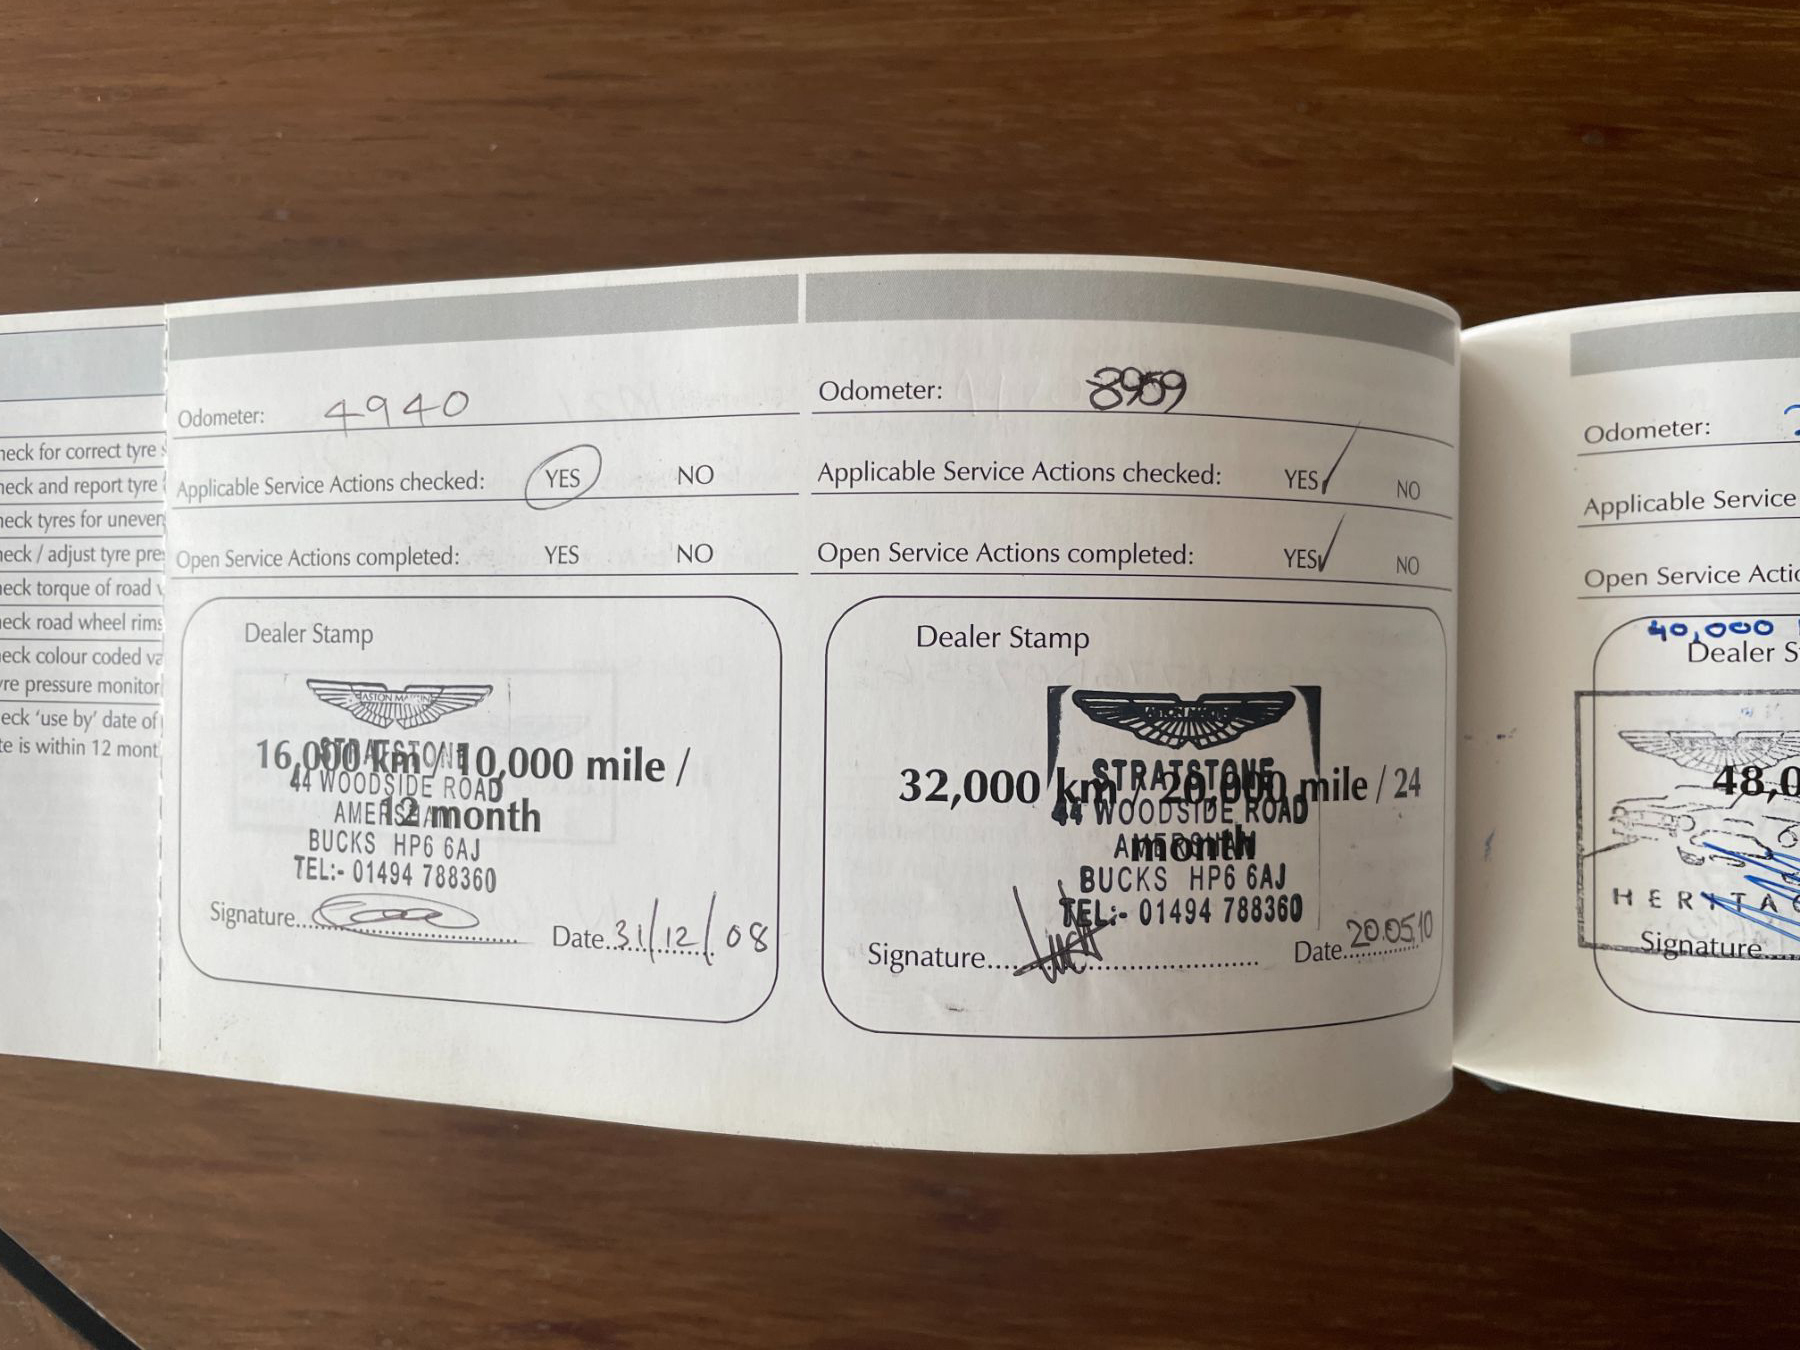 heck for correct tyre
heck and report tyre
heck tyres for uneven
heck / adjust tyre pre
heck torque of road
eck road wheel rims
eck colour coded va
re pressure monitor
eck 'use by' date of
te is within 12 mont
Odometer: 4940
Applicable Service Actions checked: YES NO
Open Service Actions completed: YES NO
Dealer Stamp
ASTON MARTIN
STRATSTONE
16,000 km / 10,000 mile /
44 WOODSIDE ROAD
AMERSHAM
12 month
BUCKS HP6 6AJ
TEL:- 01494 788360
Signature
Date 31/12/08
Odometer: 8959
Applicable Service Actions checked: YES✓ NO
Open Service Actions completed: YES✓ NO
Dealer Stamp
ASTON MARTIN
STRATSTONE
32,000 km / 20,000 mile / 24
44 WOODSIDE ROAD
AMERSHAM
month
BUCKS HP6 6AJ
TEL:- 01494 788360
Signature
Date 20.05.10
Odometer:
Applicable Service
Open Service Actio
40,000
Dealer S
48,0
HERITAG
Signature